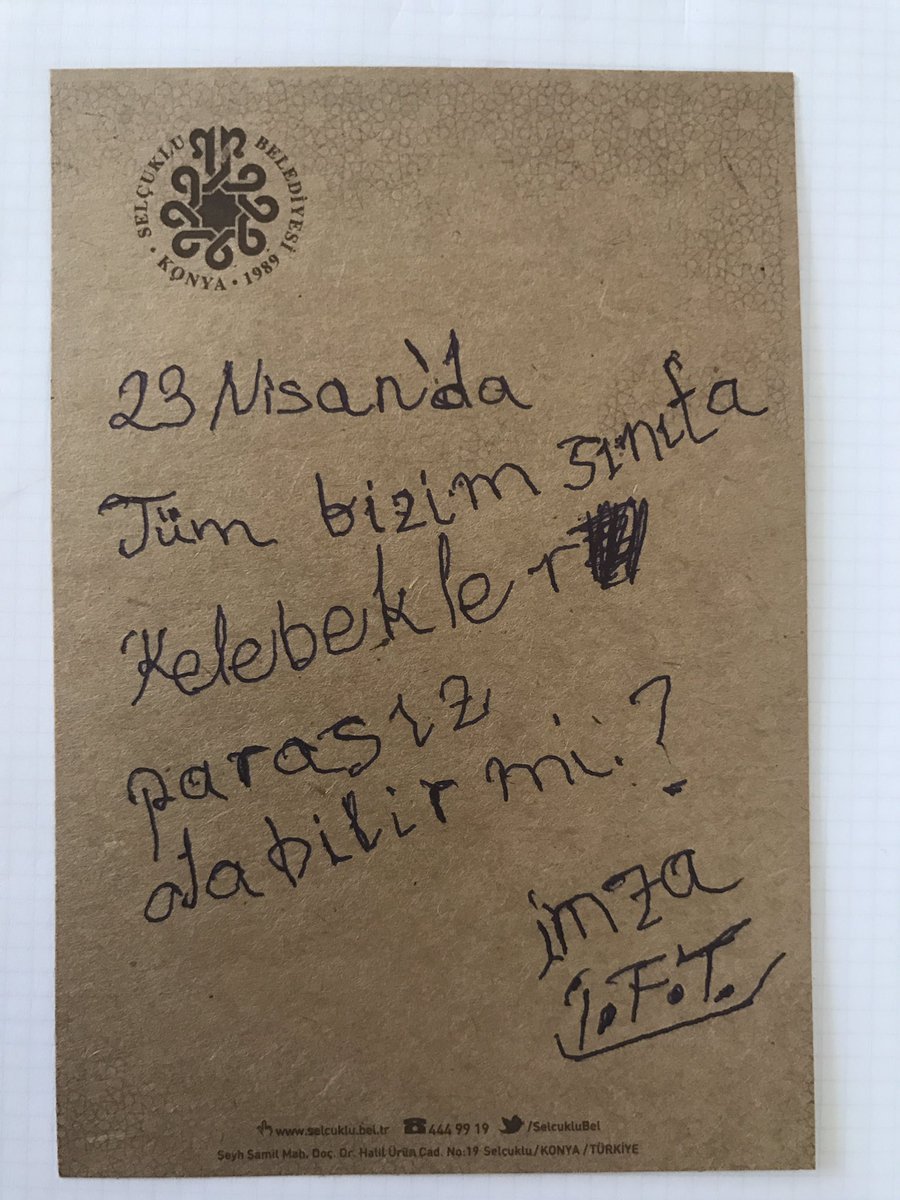 SELÇUKLU BELEDİYESİ
• KONYA • 1989
23 Nisan'da
Tüm bizim sınıfa
Kelebekler
parasız
olabilir mi.?
imza
İ.F.T.
www.selcuklu.bel.tr 444 99 19 /SelcukluBel
Şeyh Şamil Mah. Doç. Dr. Halil Ürün Cad. No:19 Selçuklu/KONYA /TÜRKİYE